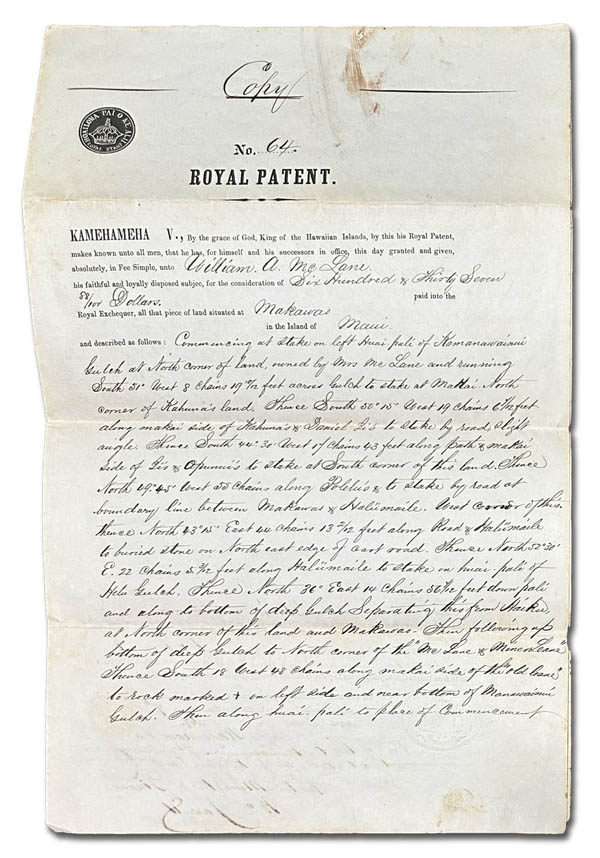 Copy
No. 64.
ROYAL PATENT.
KAMEHAMEHA V., By the grace of God, King of the Hawaiian Islands, by this his Royal Patent,
makes known unto all men, that he has, for himself and his successors in office, this day granted and given,
absolutely, in Fee Simple, unto William A. McLane
his faithful and loyally disposed subjec, for the consideration of Six Hundred & Thirty Seven
50/100 Dollars. paid into the
Royal Exchequer, all that piece of land situated at Makawao
in the Island of Maui.
and described as follows: Commencing at stake on left Huai pali of
Gulch at North corner of land, owned by Mrs McLane and running
South 51° West 8 Chains 19 feet across Gulch to stake at North
corner of Kahuna's land. Thence South 50° 15' West 19 Chains feet
along makai side of Kahuna's & Daniel to stake by road slight
angle. Thence South 44° 30' West 17 Chains 43 feet along path & makai
side of & to stake at South corner of this land. Thence
North 49° 45' West Chains along & to stake by road at
boundary line between Makawao & Haliimaile. West corner of this.
thence North 43° 15' East 44 Chains 13 feet along Road & Haliimaile
to buried stone on North east edge of cart road. Thence North 52° 30'
E. 22 Chains feet along Haliimaile to stake on huai pali of
Gulch. Thence North 36° East 14 Chains feet down pali
and along to bottom of deep Gulch Separating this from
at North corner of this land and Makawao. Then following up
bottom of deep Gulch to North corner of the "McLane & Lease"
Thence South 18° West 48 Chains along makai side of the "old Lease"
to rock marked + on left side and near bottom of
Gulch. Then along huai pali to place of Commencement